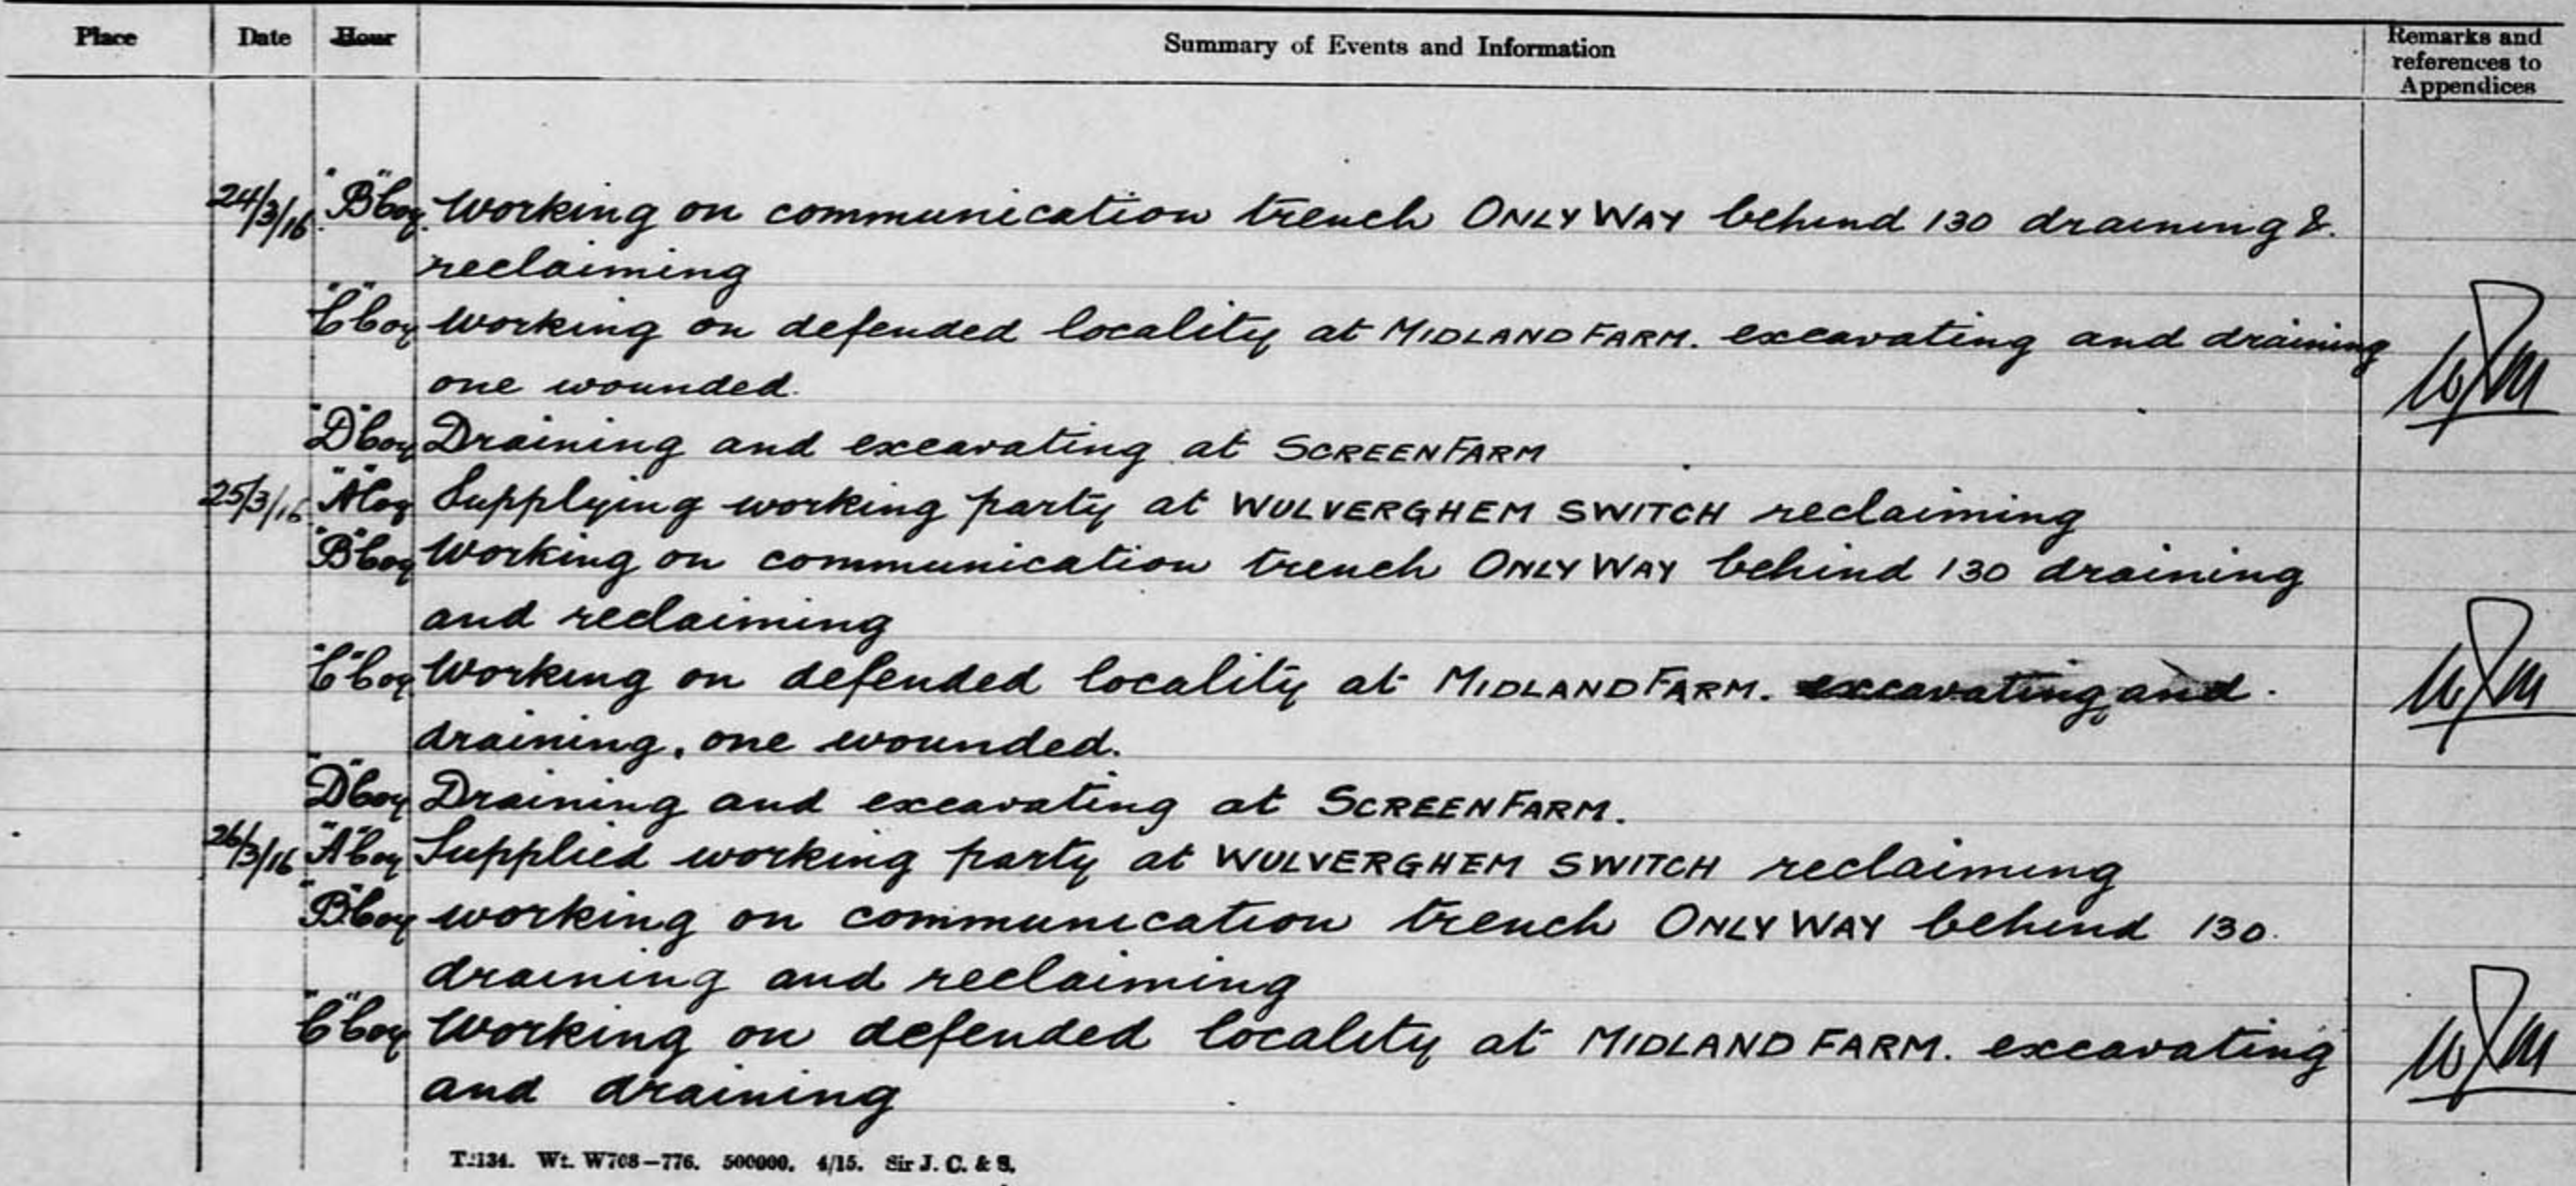 Place Date Hour Summary of Events and Information Remarks and references to Appendices
24/3/16 "B" Coy Working on communication trench ONLY WAY behind 130 draining &
reclaiming
"C" Coy Working on defended locality at MIDLAND FARM. excavating and draining
one wounded.
"D" Coy Draining and excavating at SCREEN FARM
25/3/16 "A" Coy Supplying working party at WULVERGHEM SWITCH reclaiming
"B" Coy Working on communication trench ONLY WAY behind 130 draining
and reclaiming
"C" Coy Working on defended locality at MIDLAND FARM. excavating and
draining, one wounded.
"D" Coy Draining and excavating at SCREEN FARM.
26/3/16 "A" Coy Supplied working party at WULVERGHEM SWITCH reclaiming
"B" Coy working on communication trench ONLY WAY behind 130.
draining and reclaiming
"C" Coy Working on defended locality at MIDLAND FARM. excavating
and draining
T.134. Wt. W708-776. 500000. 4/15. Sir J. C. & S.